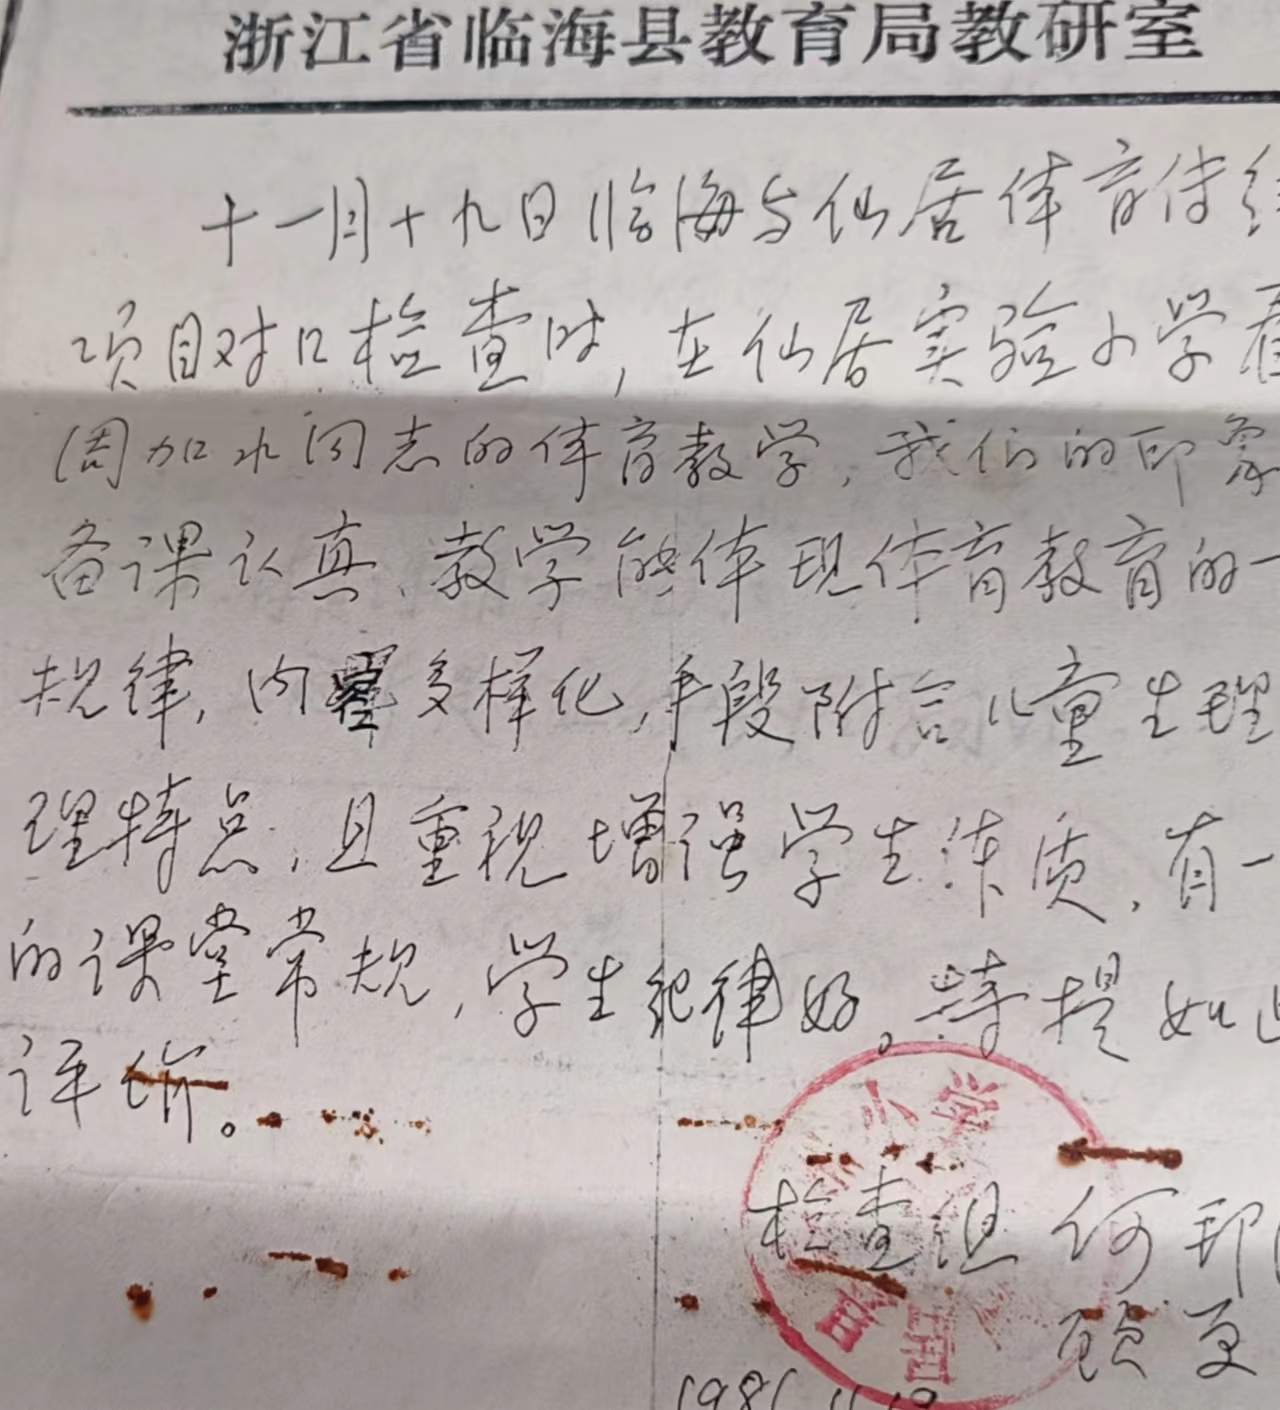 浙江省临海县教育局教研室
十一月十九日临海与仙居体育传统
项目对口检查时,在仙居实验小学看
周加水同志的体育教学,我们的印象
备课认真、教学能体现体育教育的一
规律,内容多样化,手段附合儿童生理
理特点,且重视增强学生体质,有一
的课堂常规,学生纪律好。特提如此
评价。
小学
检查组 何邦
顾